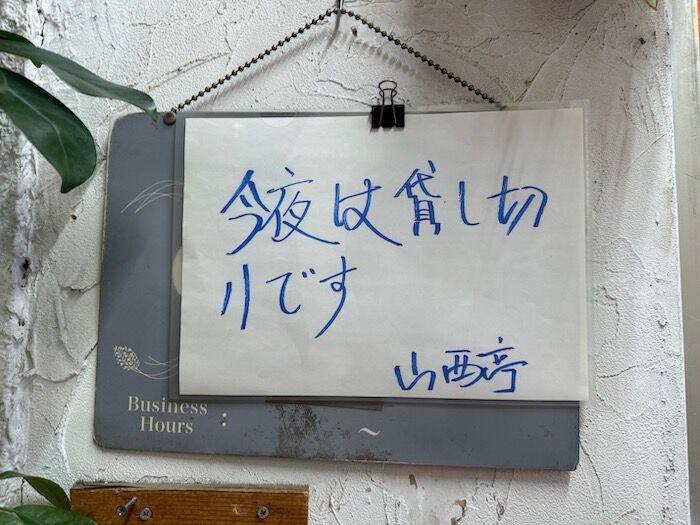 今夜は貸し切
りです
山西亭
Business
Hours :
~